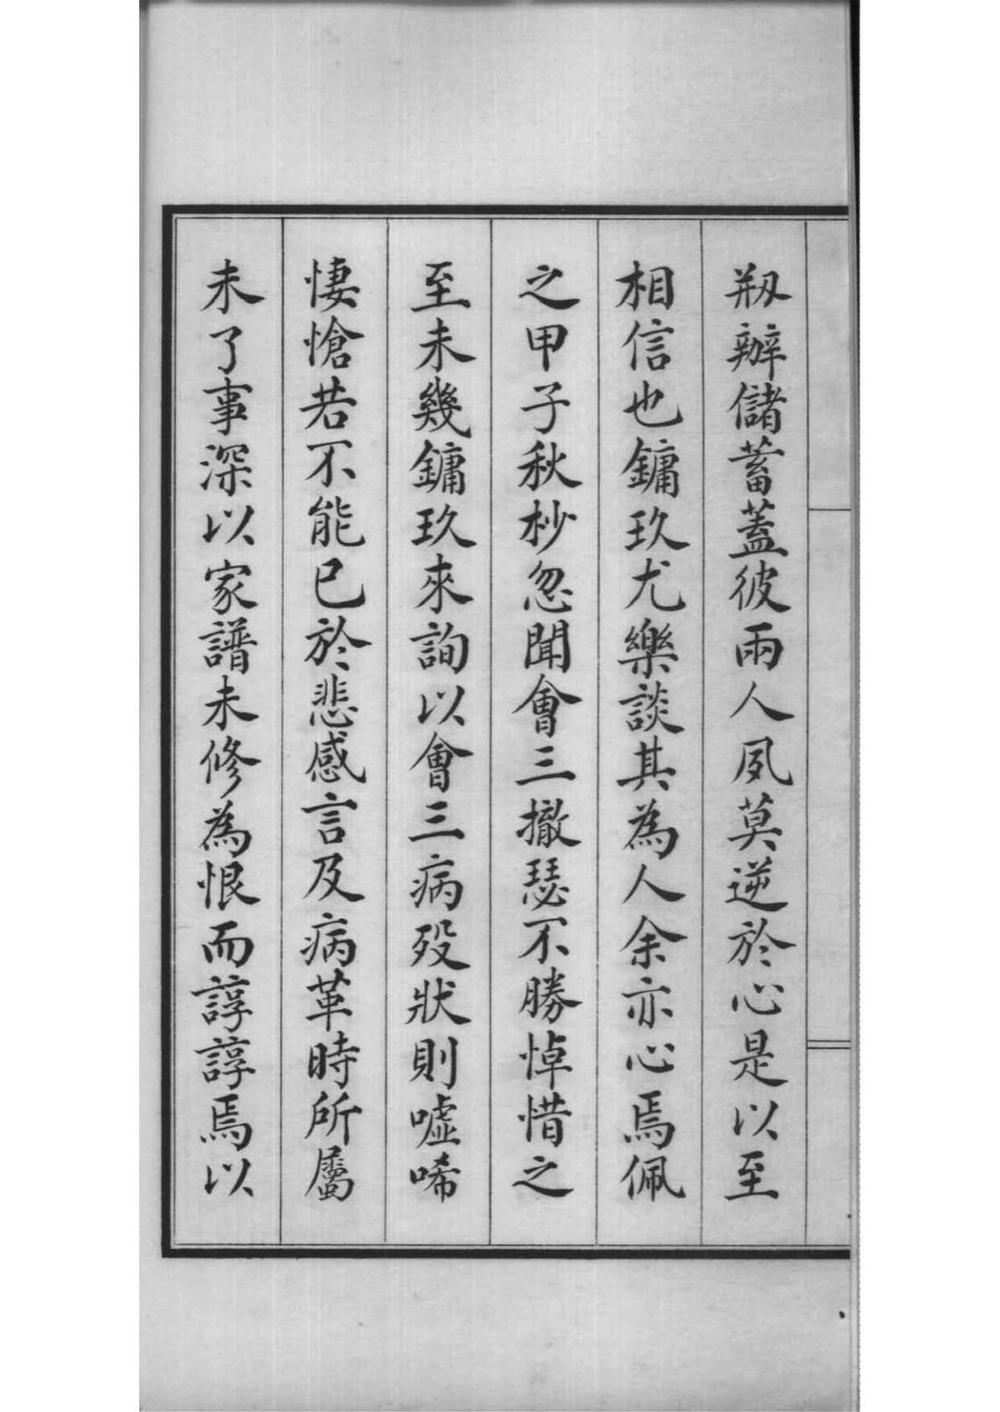 剏辦儲蓄蓋彼兩人夙莫逆於心是以至
相信也鏞玖尤樂談其為人余亦心焉佩
之甲子秋杪忽聞會三撤瑟不勝悼惜之
至未幾鏞玖來詢以會三病歿狀則噓唏
悽愴若不能已於悲感言及病革時所屬
未了事深以家譜未修為恨而諄諄焉以